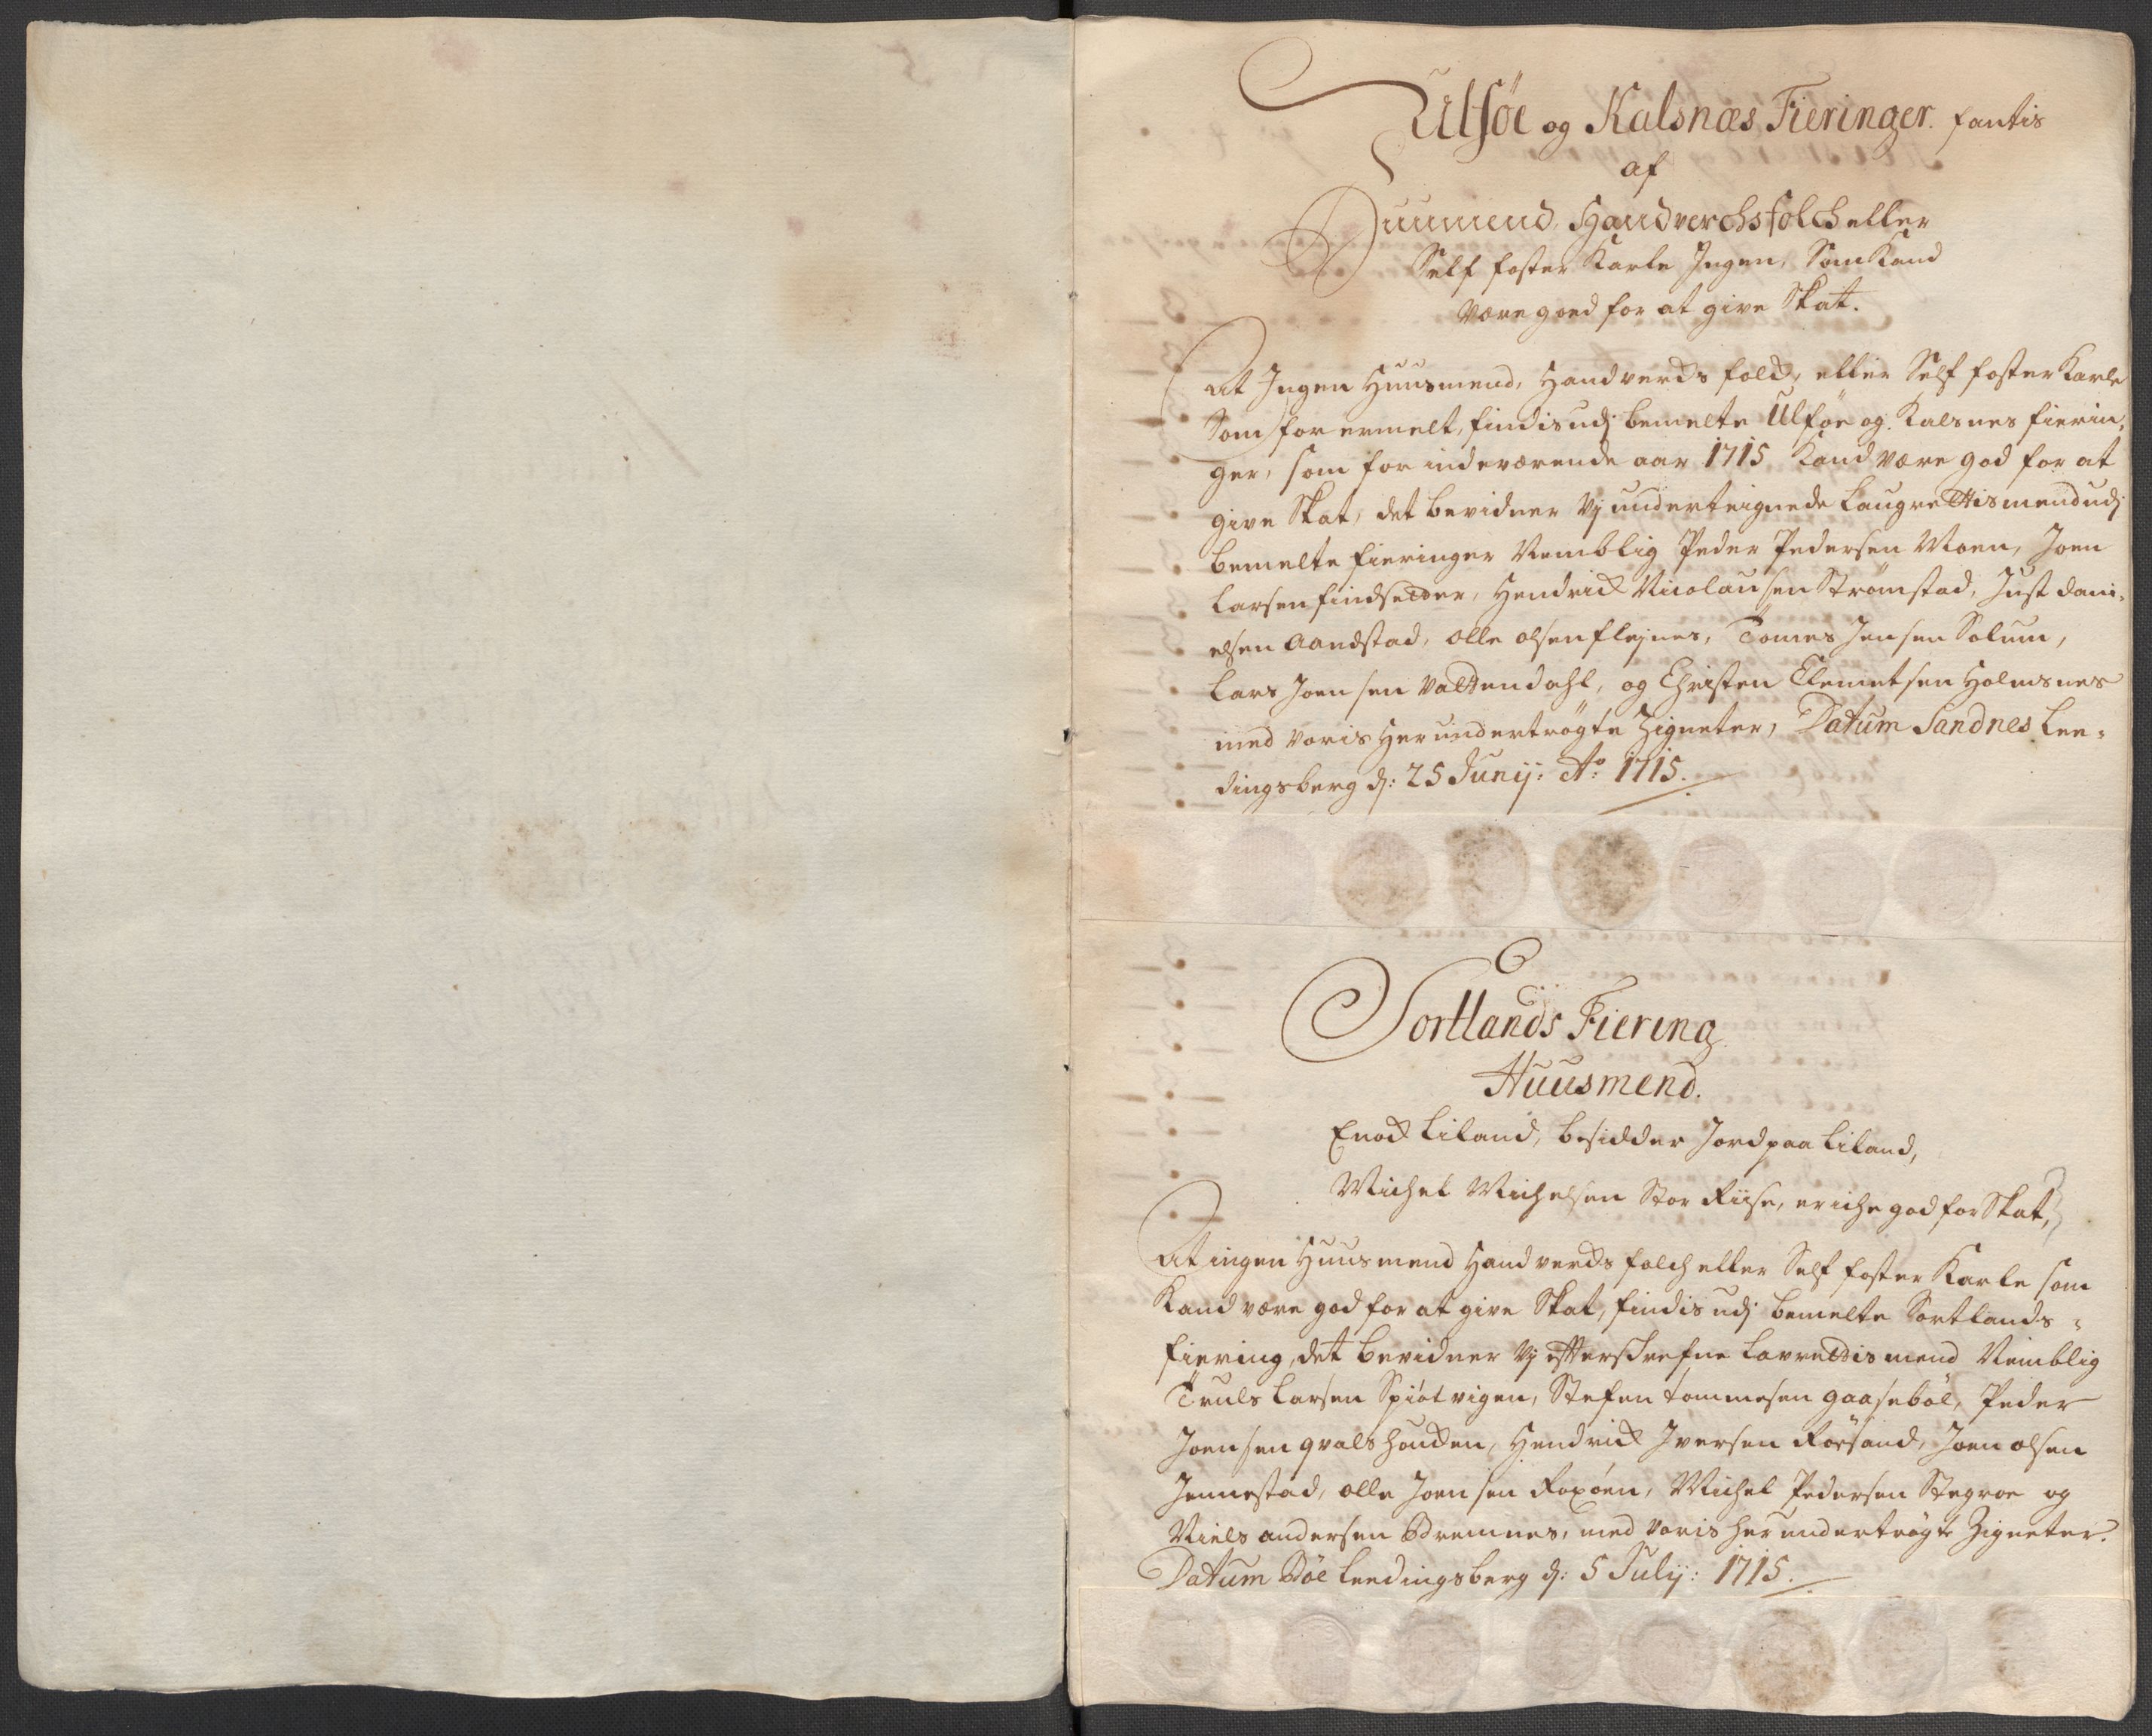 Ulføe og Kalsnæs Fieringer. fantis
af
Huusmend, Handverchsfolch eller
Self foster Karle Ingen, Som Kand
være goed for at give Skat.
At Ingen Huusmend, Handvercks folck, eller Self foster Karle
Som for ermelt, findis udj bemelte Ulføe og Kalsnes fierin,
ger, som for indeværende aar 1715 Kand være god for at
give Skat, det bevidner Vj underteignede Laugrettismend udj
bemelte fieringer Nemblig Peder Pedersen Moen, Joen
Larsen findsetter, Hendrick Nicolausen Strømstad, Just dani,
elsen Aandstad, olle olsen flejnes, Tomes Jensen Solum,
Lars Joensen Vattendahl, og Christen Clemetsen Holmsnes
med voris Her undertrøgte Zigneter, Datum Sandnes Lee,
dingsberg dj: 25 Junij: Ao: 1715.
Sortlands Fiering
Huusmend.
Enock Liland, besidder Jord paa Liland,
Michel Michelsen Stor Riise, er iche god for Skat,
At ingen Huusmend Handvercks folch eller Self foster Karle som
Kand være god for at give Skat, findis udj bemelte Sortlands,
fiering, det bevidner Vj effterskrefne Lavrettismend Nemblig
Truls Larsen Spiøtvigen, Stefen tommesen gaasebøl, Peder
Joensen qvalshoucken, Hendrick Iversen Rørsand, Joen olsen
Jennestad, olle Joensen Roxøen, Michel Pedersen Stegroe og
Niels andersen Bremnes, med voris her undertrøgte Zigneter.
Datum Bøe Leedingsberg dj: 5 Julij: 1715.